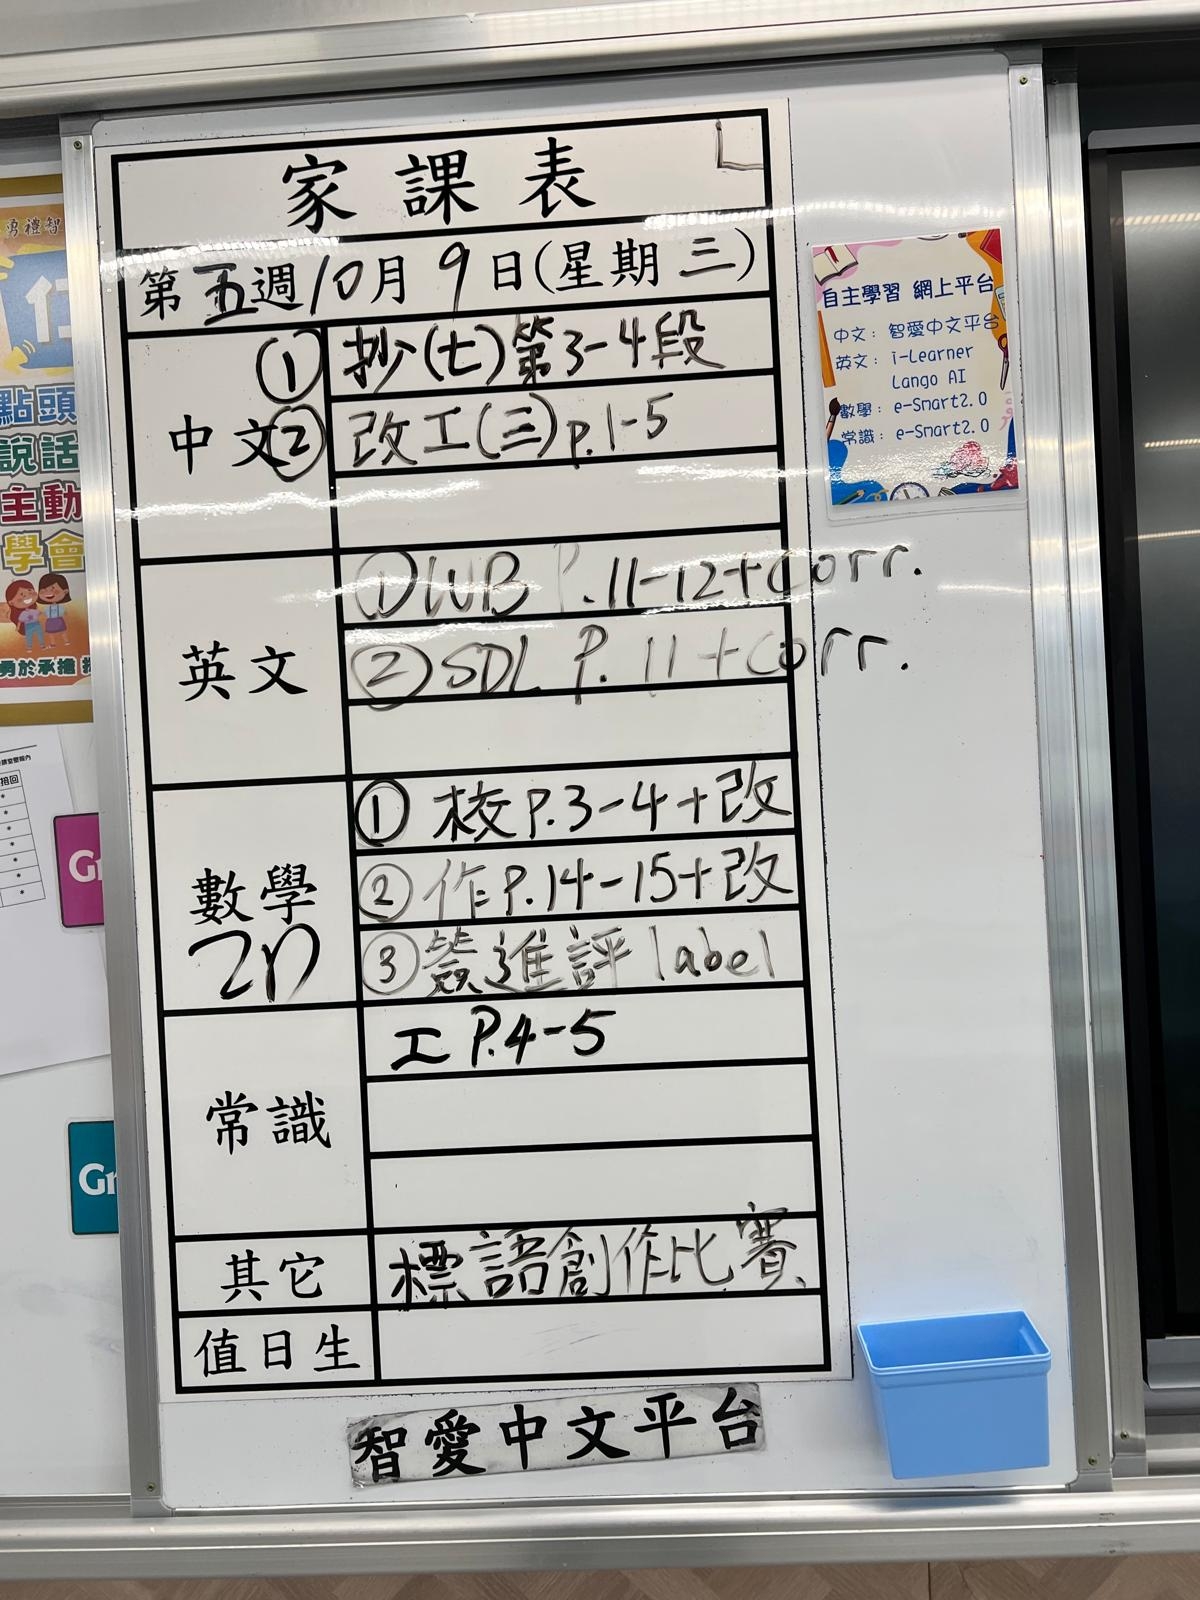 家課表
第五週10月9日(星期三)
中文
① 抄(七)第3-4段
② 改工(三)p.1-5
英文
① WB P.11-12+Corr.
② SDL P.11+Corr.
數學
2n
① 校P.3-4+改
② 作P.14-15+改
③ 簽進評label
常識
工 P.4-5
其它
標語創作比賽
值日生
智愛中文平台
自主學習 網上平台
中文：智愛中文平台
英文：i-Learner
Lango AI
數學：e-Smart2.0
常識：e-Smart2.0
勇禮智
仁
點頭
說話
主動
學會
勇於承擔
Gr
Gr